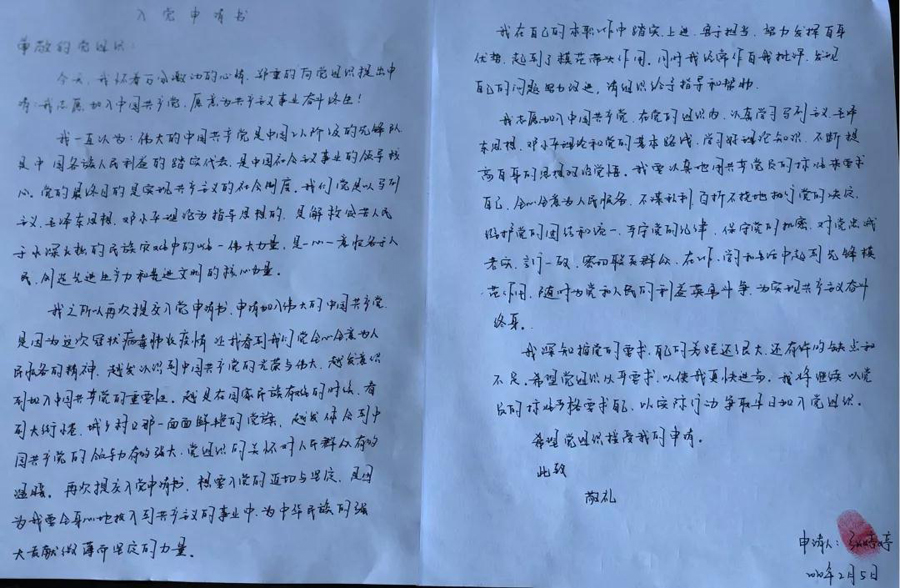 入党申请书
尊敬的党组织：
今天，我怀着万分激动的心情，郑重的向党组织提出申
请：我志愿加入中国共产党，愿意为共产主义事业奋斗终生！
我一直认为：伟大的中国共产党是中国工人阶级的先锋队
是中国各族人民利益的踏实代表，是中国社会主义事业的领导核
心。党的最终目的是实现共产主义的社会制度。我们党是以马列
主义、毛泽东思想、邓小平理论为指导思想的，是解放全世人民
于水深火热的民族灾难中的唯一伟大力量，是一心一意服务于人
民，创造先进生产力和先进文明的核心力量。
我之所以再次提交入党申请书，申请加入伟大的中国共产党
是因为这次冠状病毒肺炎疫情 让我看到我们党全心全意为人
民服务的精神，越发认识到中国共产党的光荣与伟大，越发意识
到加入中国共产党的重要性。越是在国家民族有难的时候，看
到大街小巷、城乡村口那一面面鲜艳的党旗，越发体会到中
国共产党的领导力有的强大，党组织的关怀对人民群众有的
温暖。再次提交入党申请书，想要入党的迫切与坚定，是因
为我要全身心地投入到共产主义的事业中，为中华民族的强
大贡献微薄而坚定的力量。
我在自己的本职工作中踏实上进、勇于担当，努力发挥自身
优势，起到了模范带头作用。同时我经常作自我批评，发现
自己的问题努力改进，请组织给予指导和帮助。
我志愿加入中国共产党，在党的组织内，认真学习马列主义、毛泽
东思想、邓小平理论和党的基本路线，学习好理论知识，不断提
高自身的思想政治觉悟。我要认真地用共产党员的标准来要求
自己，全心全意为人民服务，不谋私利，百折不挠地执行党的决定，
维护党的团结和统一，严守党的纪律，保守党的机密，对党忠诚
老实，言行一致，密切联系群众，在工作、学习和生活中起到先锋模
范作用，随时为党和人民的利益英勇斗争，为实现共产主义奋斗
终身。
我深知按党的要求，自己的差距还很大，还有许多缺点和
不足，希望党组织从严要求，以使我更快进步。我将继续以党
员的标准严格要求自己，以实际行动争取早日加入党组织。
希望党组织接受我的申请。
此致
敬礼
申请人：
2020年2月5日